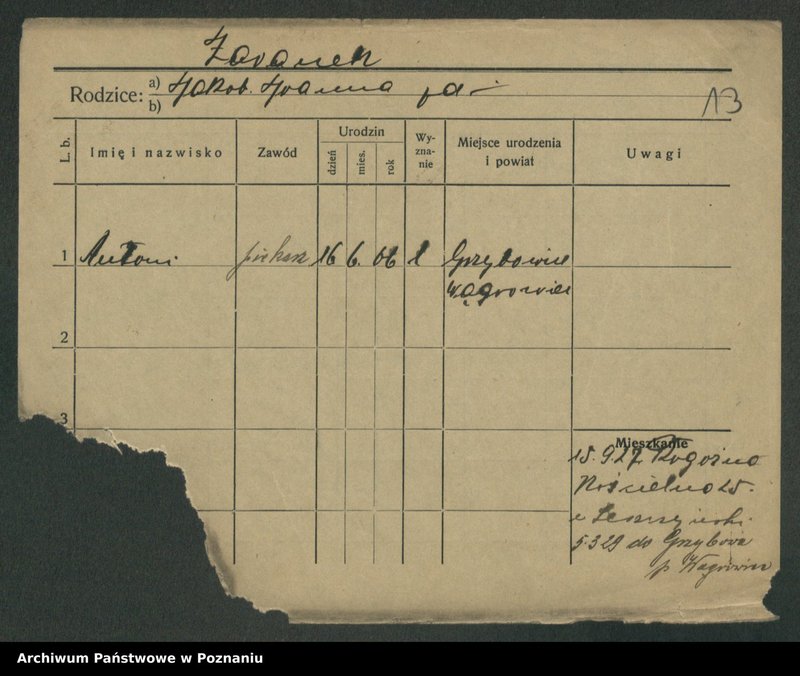 Rodzice: a) Jakob. Joanna
b)
13
L. b.
Imię i nazwisko
Zawód
Urodzin
dzień
mies.
rok
Wy-
zna-
nie
Miejsce urodzenia
i powiat
Uwagi
1 Antoni piekarz 16 6. 06
Wągrowiec
2
3
Mieszkanie
15.9.27 Rogoźno
25.
5.3 29 do
p. Wągrowiec
Archiwum Państwowe w Poznaniu